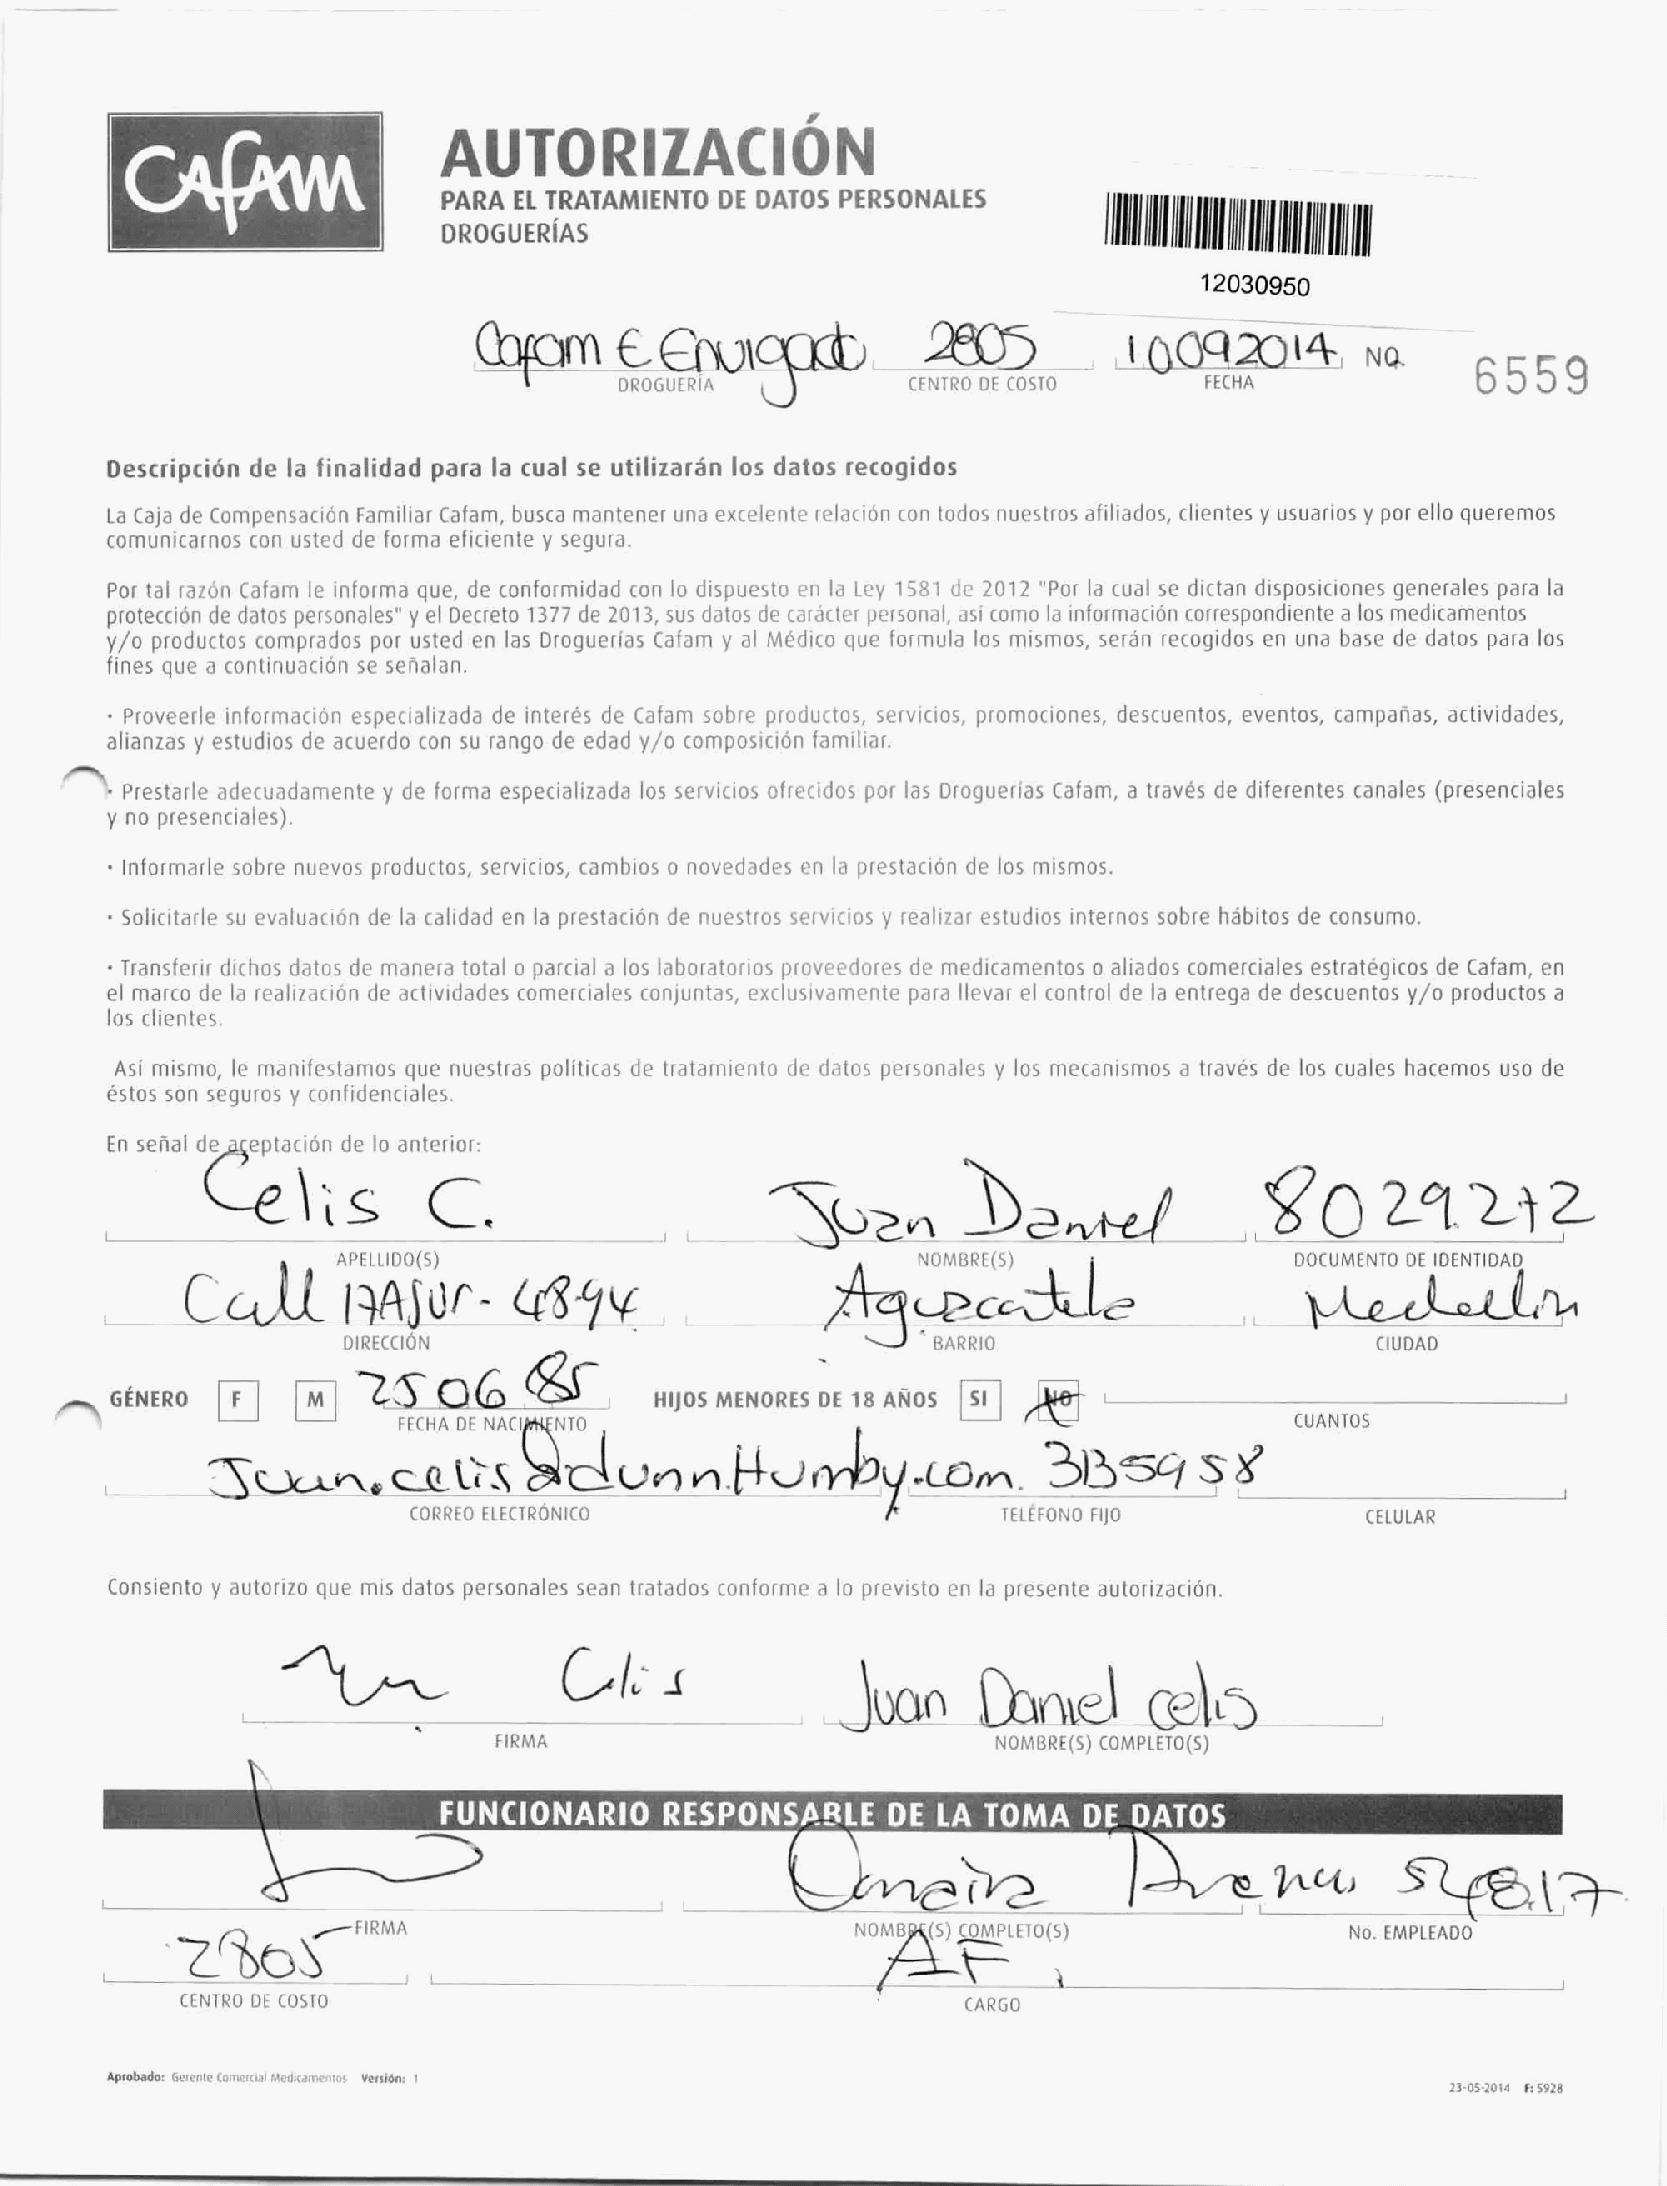 CAFAM
AUTORIZACIÓN
PARA EL TRATAMIENTO DE DATOS PERSONALES
DROGUERÍAS
12030950
Cafam E Envigado 2805 10092014 NO. 6559
DROGUERÍA CENTRO DE COSTO FECHA
Descripción de la finalidad para la cual se utilizarán los datos recogidos
La Caja de Compensación Familiar Cafam, busca mantener una excelente relación con todos nuestros afiliados, clientes y usuarios y por ello queremos
comunicarnos con usted de forma eficiente y segura.
Por tal razón Cafam le informa que, de conformidad con lo dispuesto en la Ley 1581 de 2012 "Por la cual se dictan disposiciones generales para la
protección de datos personales" y el Decreto 1377 de 2013, sus datos de carácter personal, así como la información correspondiente a los medicamentos
y/o productos comprados por usted en las Droguerías Cafam y al Médico que formula los mismos, serán recogidos en una base de datos para los
fines que a continuación se señalan.
· Proveerle información especializada de interés de Cafam sobre productos, servicios, promociones, descuentos, eventos, campañas, actividades,
alianzas y estudios de acuerdo con su rango de edad y/o composición familiar.
· Prestarle adecuadamente y de forma especializada los servicios ofrecidos por las Droguerías Cafam, a través de diferentes canales (presenciales
y no presenciales).
· Informarle sobre nuevos productos, servicios, cambios o novedades en la prestación de los mismos.
· Solicitarle su evaluación de la calidad en la prestación de nuestros servicios y realizar estudios internos sobre hábitos de consumo.
· Transferir dichos datos de manera total o parcial a los laboratorios proveedores de medicamentos o aliados comerciales estratégicos de Cafam, en
el marco de la realización de actividades comerciales conjuntas, exclusivamente para llevar el control de la entrega de descuentos y/o productos a
los clientes.
Así mismo, le manifestamos que nuestras políticas de tratamiento de datos personales y los mecanismos a través de los cuales hacemos uso de
éstos son seguros y confidenciales.
En señal de aceptación de lo anterior:
Celis C. Juan Daniel
APELLIDO(S) NOMBRE(S) DOCUMENTO DE IDENTIDAD
Call 17ASUr - 4894 Medellin
DIRECCIÓN BARRIO CIUDAD
GÉNERO F M 250685 HIJOS MENORES DE 18 AÑOS SI NO
FECHA DE NACIMIENTO CUANTOS
Juan.celis@dunnHumby.com. 3135958
CORREO ELECTRÓNICO TELÉFONO FIJO CELULAR
Consiento y autorizo que mis datos personales sean tratados conforme a lo previsto en la presente autorización.
Celis Juan Daniel celis
FIRMA NOMBRE(S) COMPLETO(S)
FUNCIONARIO RESPONSABLE DE LA TOMA DE DATOS
Omaira Arenas 54817
FIRMA NOMBRE(S) COMPLETO(S) No. EMPLEADO
2805 AF
CENTRO DE COSTO CARGO
Aprobado: Gerente Comercial Medicamentos Versión: 1
23-05-2014 F: 5928